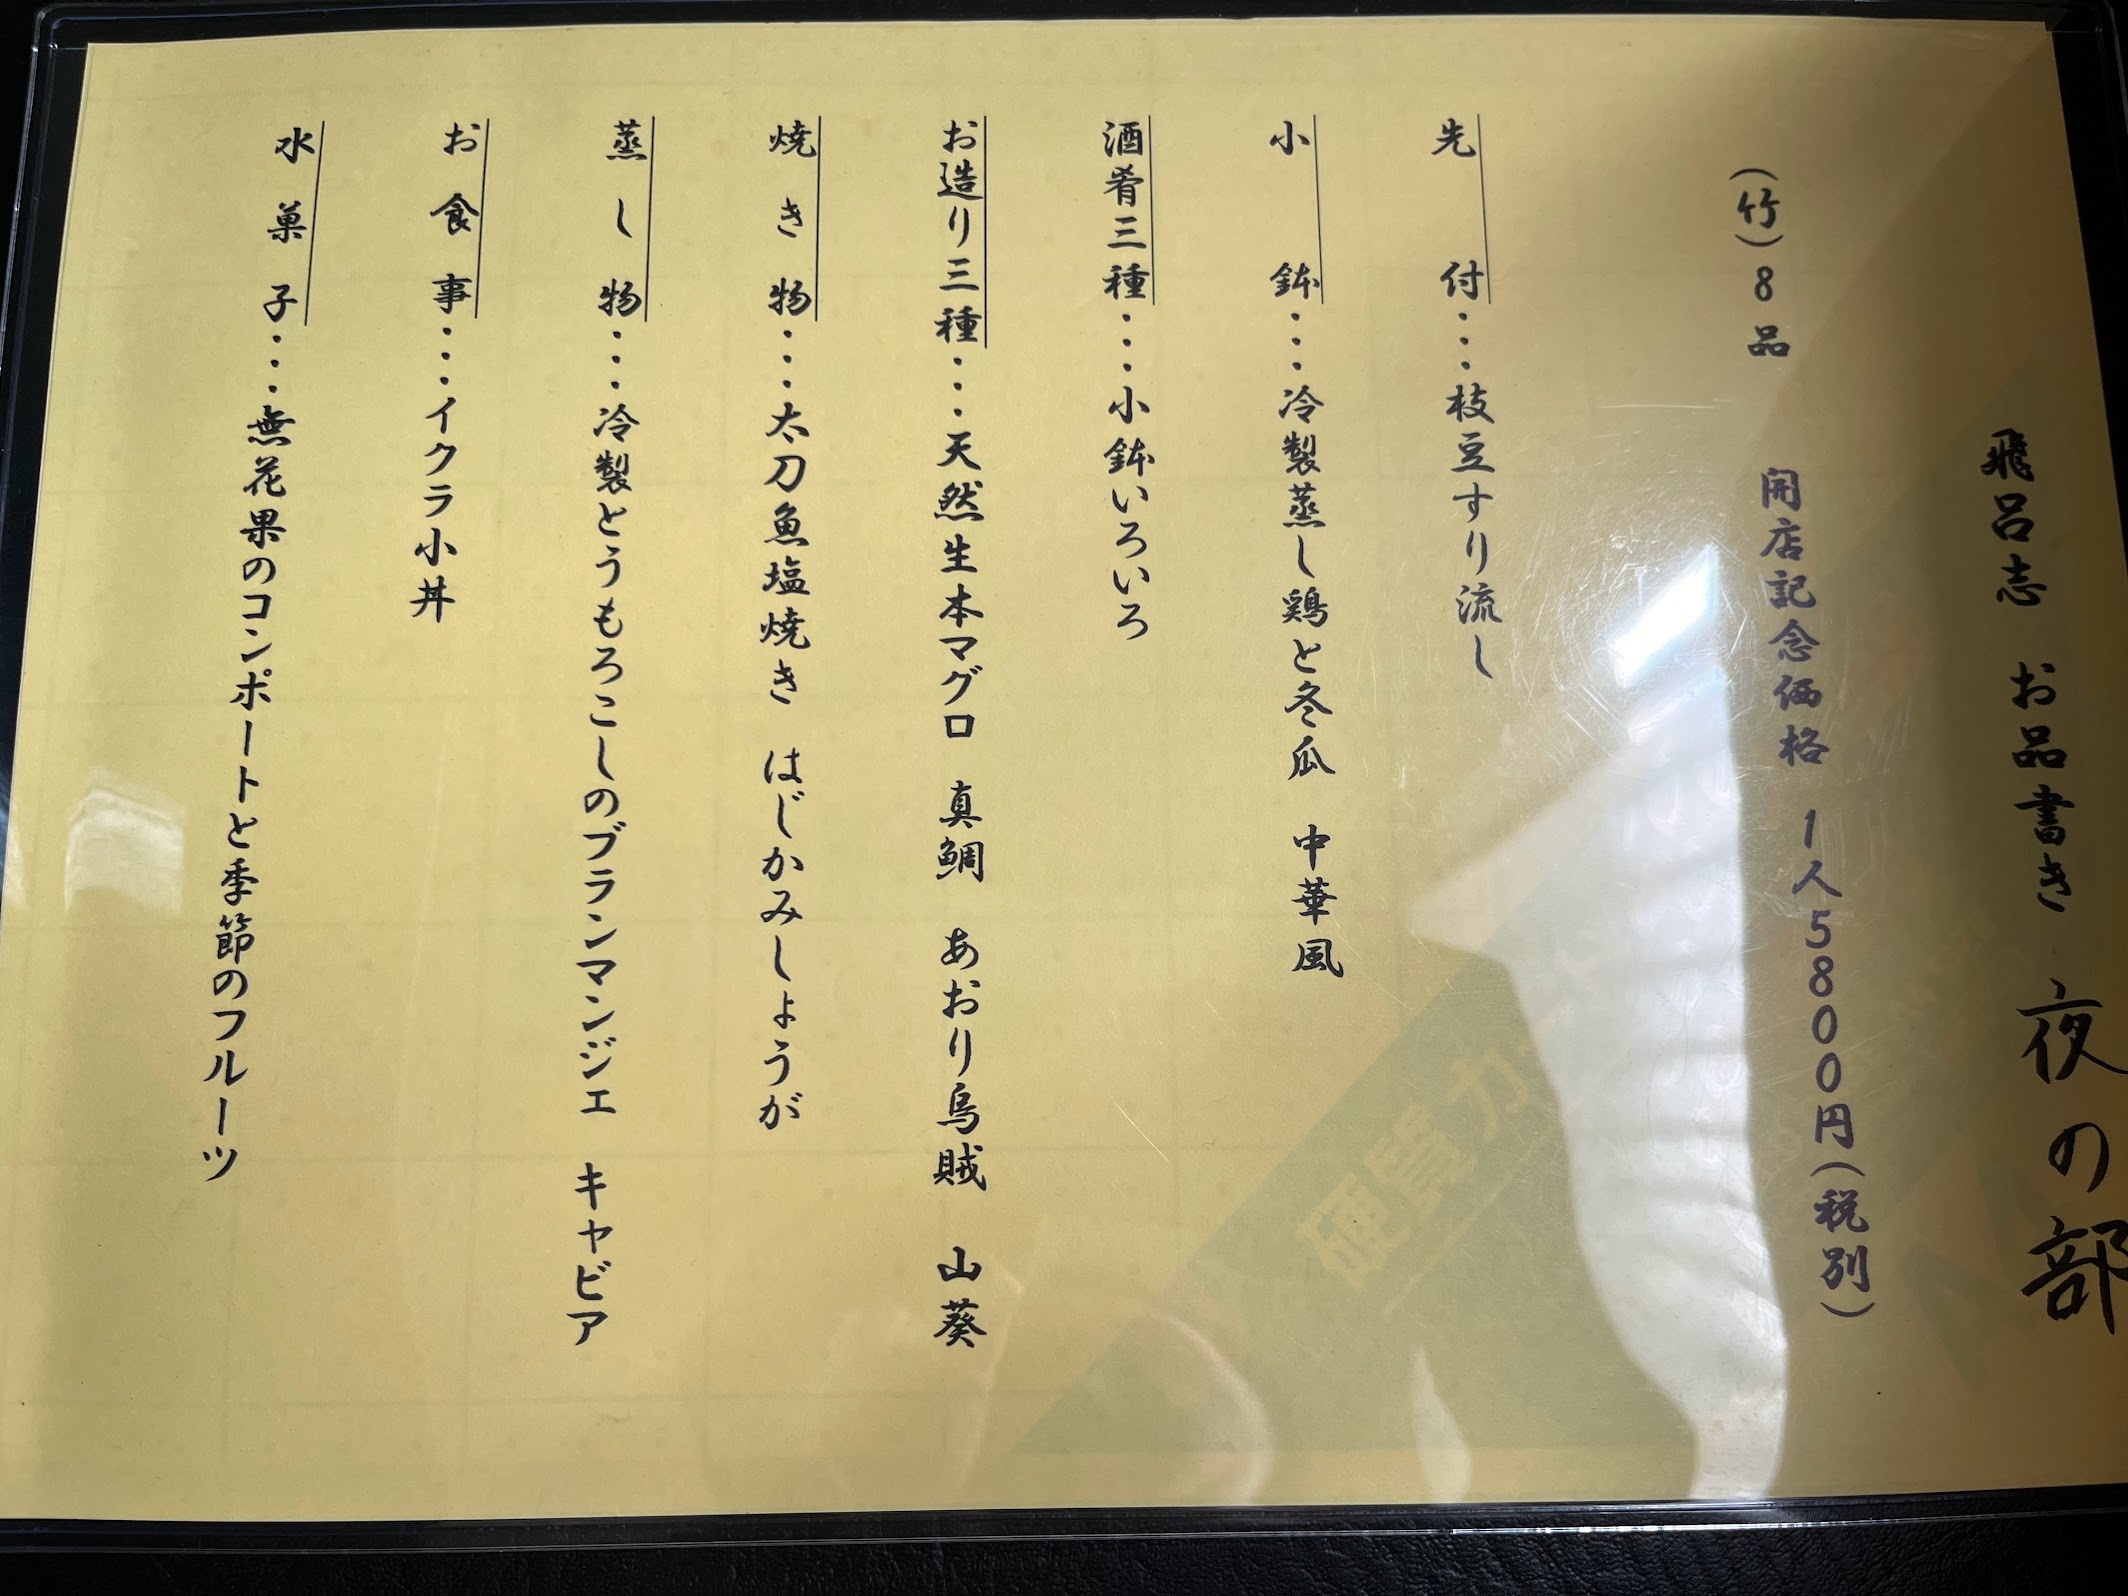 飛呂志 お品書き 夜の部
(竹)8品 開店記念価格 1人5800円(税別)
先付・・・枝豆すり流し
小鉢・・・冷製蒸し鶏と冬瓜 中華風
酒肴三種・・・小鉢いろいろ
お造り三種・・・天然生本マグロ 真鯛 あおり烏賊 山葵
焼き物・・・太刀魚塩焼き はじかみしょうが
蒸し物・・・冷製とうもろこしのブランマンジェ キャビア
お食事・・・イクラ小丼
水菓子・・・無花果のコンポートと季節のフルーツ
硬質カ